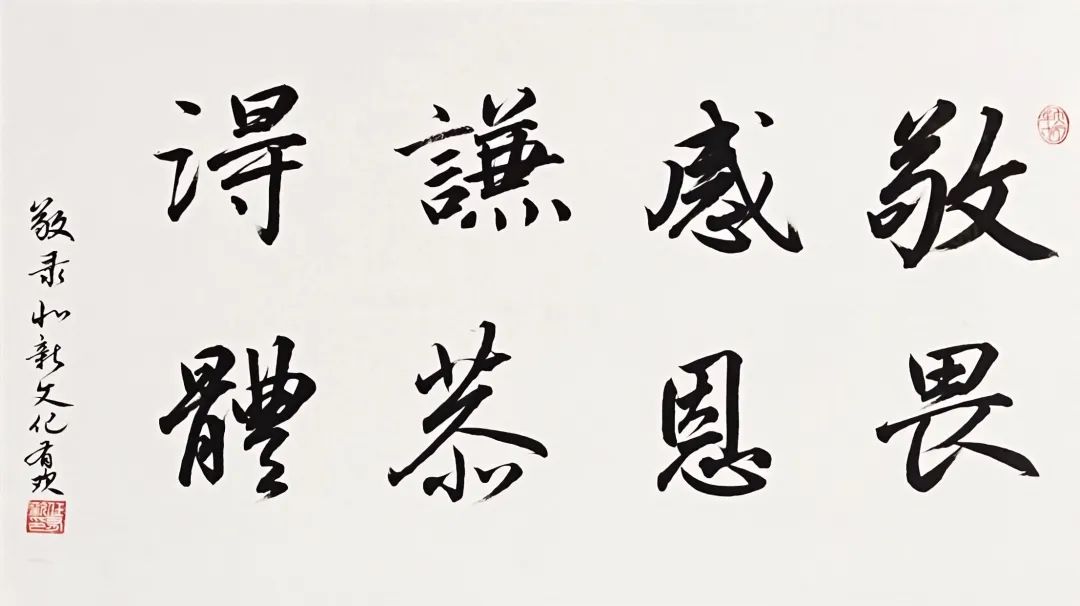 敬畏
感恩
謙恭
得體
敬录心新文化有欢